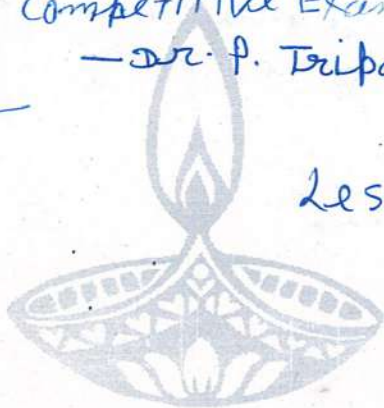 Competitive Exam
— Dr. P. Tripa
Les